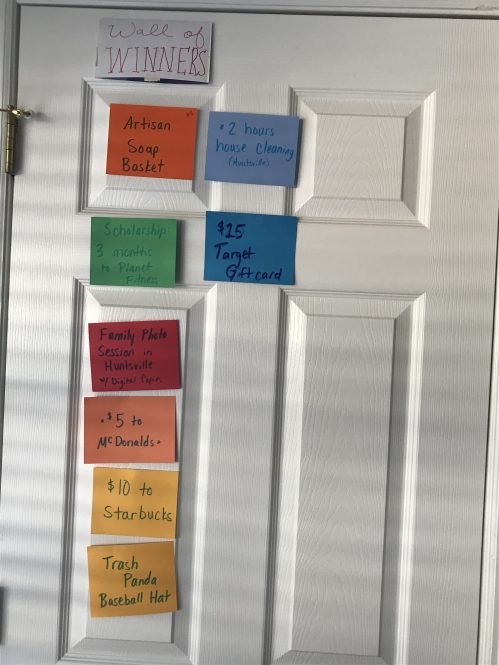 Wall of
WINNERS
Artisan
Soap
Basket
• 2 hours
house cleaning
(Huntsville)
Scholarship:
3 months
to Planet
Fitness
$25
Target
Giftcard
Family Photo
Session in
Huntsville
w/ Digital
• $5 to
McDonalds •
$10 to
Starbucks
Trash
Panda
Baseball Hat